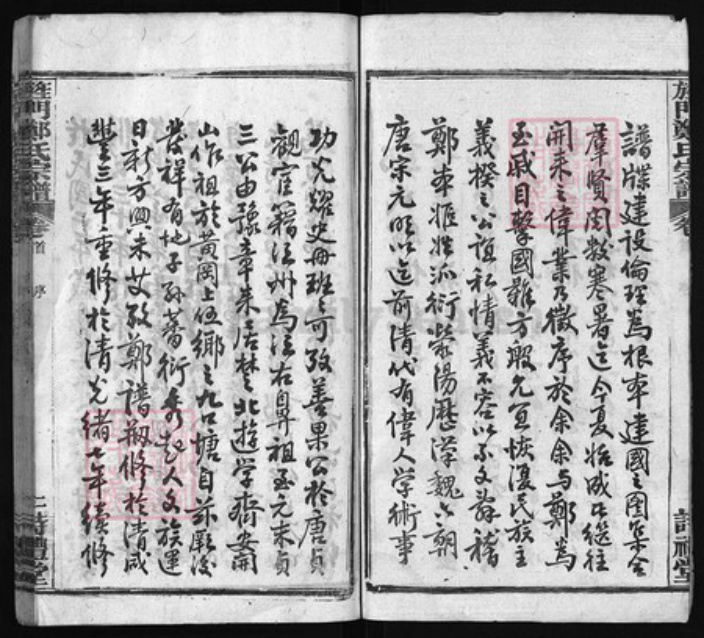 譜牒建設倫理為根本建國之圖集合
羣賢閱數寒暑迄今夏始成其繼往
開来之偉業乃徵序於余余與鄭為
玉戚目擊國難方殷允宜恢復民族主
義揆之公誼私情義不容以不文辞稽
鄭本惟姓派衍滎陽歷漢魏六朝
唐宋元明以迄前清代有偉人學術事
功光耀史冊班班可攷善果公於唐貞
觀官籍江州為江右鼻祖至元末貞
三公由豫章来居楚北遊學齊安開
山作祖於黃岡上伍鄉之九口塘自茲厥後
發祥有地子孫蕃衍秀起人文族運
日新方興未艾攷鄭譜刱修於清咸
豐三年重修於清光緒七年續修
旌門鄭氏宗譜
卷首
序
二
詩禮堂